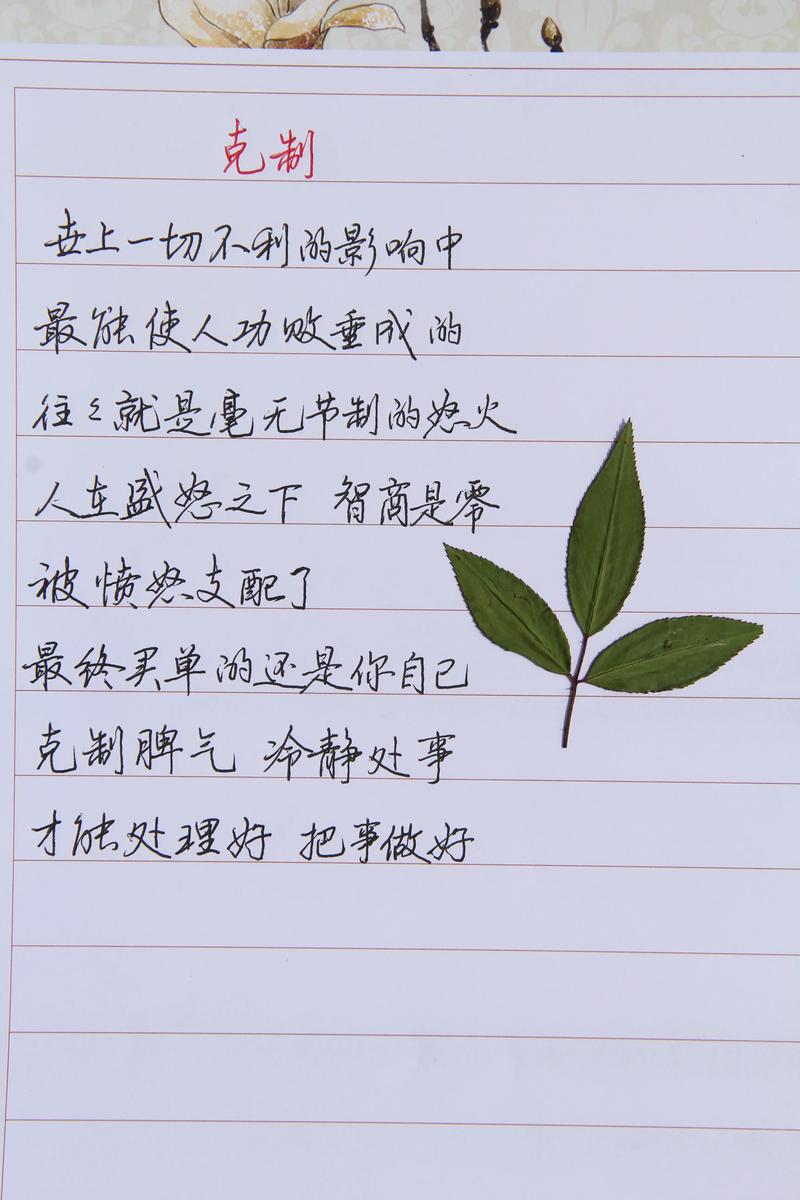 克制
世上一切不利的影响中
最能使人功败垂成的
往々就是毫无节制的怒火
人在盛怒之下 智商是零
被愤怒支配了
最终买单的还是你自己
克制脾气 冷静处事
才能处理好 把事做好